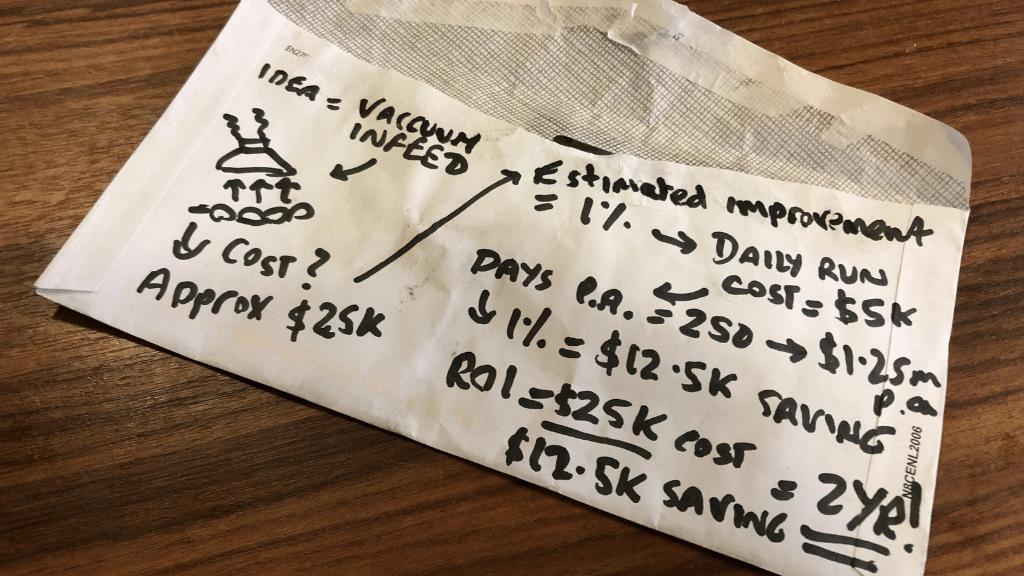 IDEA = VACCUUM
INFEED
COST?
Approx $25K
Estimated improvement
= 1%
DAILY RUN
COST = $5K
DAYS P.A. = 250
$1.25m
p.a
1% = $12.5K SAVING
ROI = $25K COST
$12.5K SAVING
= 2YR!
NBCENL2006